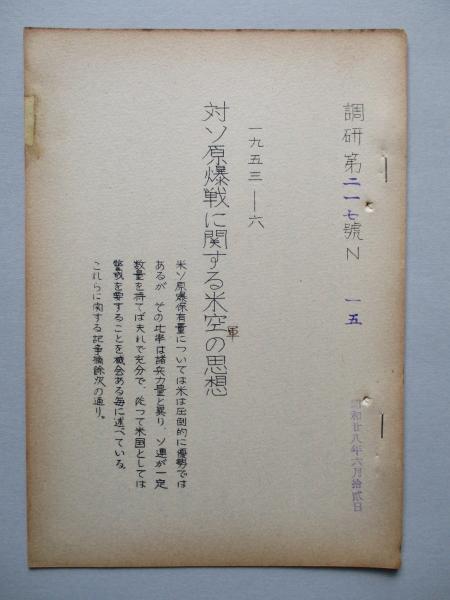 調研第二一七號N 一五
昭和廿八年六月拾貳日
一九五三―六
対ソ原爆戦に関する米空軍の思想
米ソ原爆保有量については米は圧倒的に優勢では
あるが その比率は諸兵力量と異り、ソ連が一定
数量を持てば夫れで充分で、従つて米国としては
警戒を要することを機会ある毎に述べている。
これらに関する記事摘録次の通り。